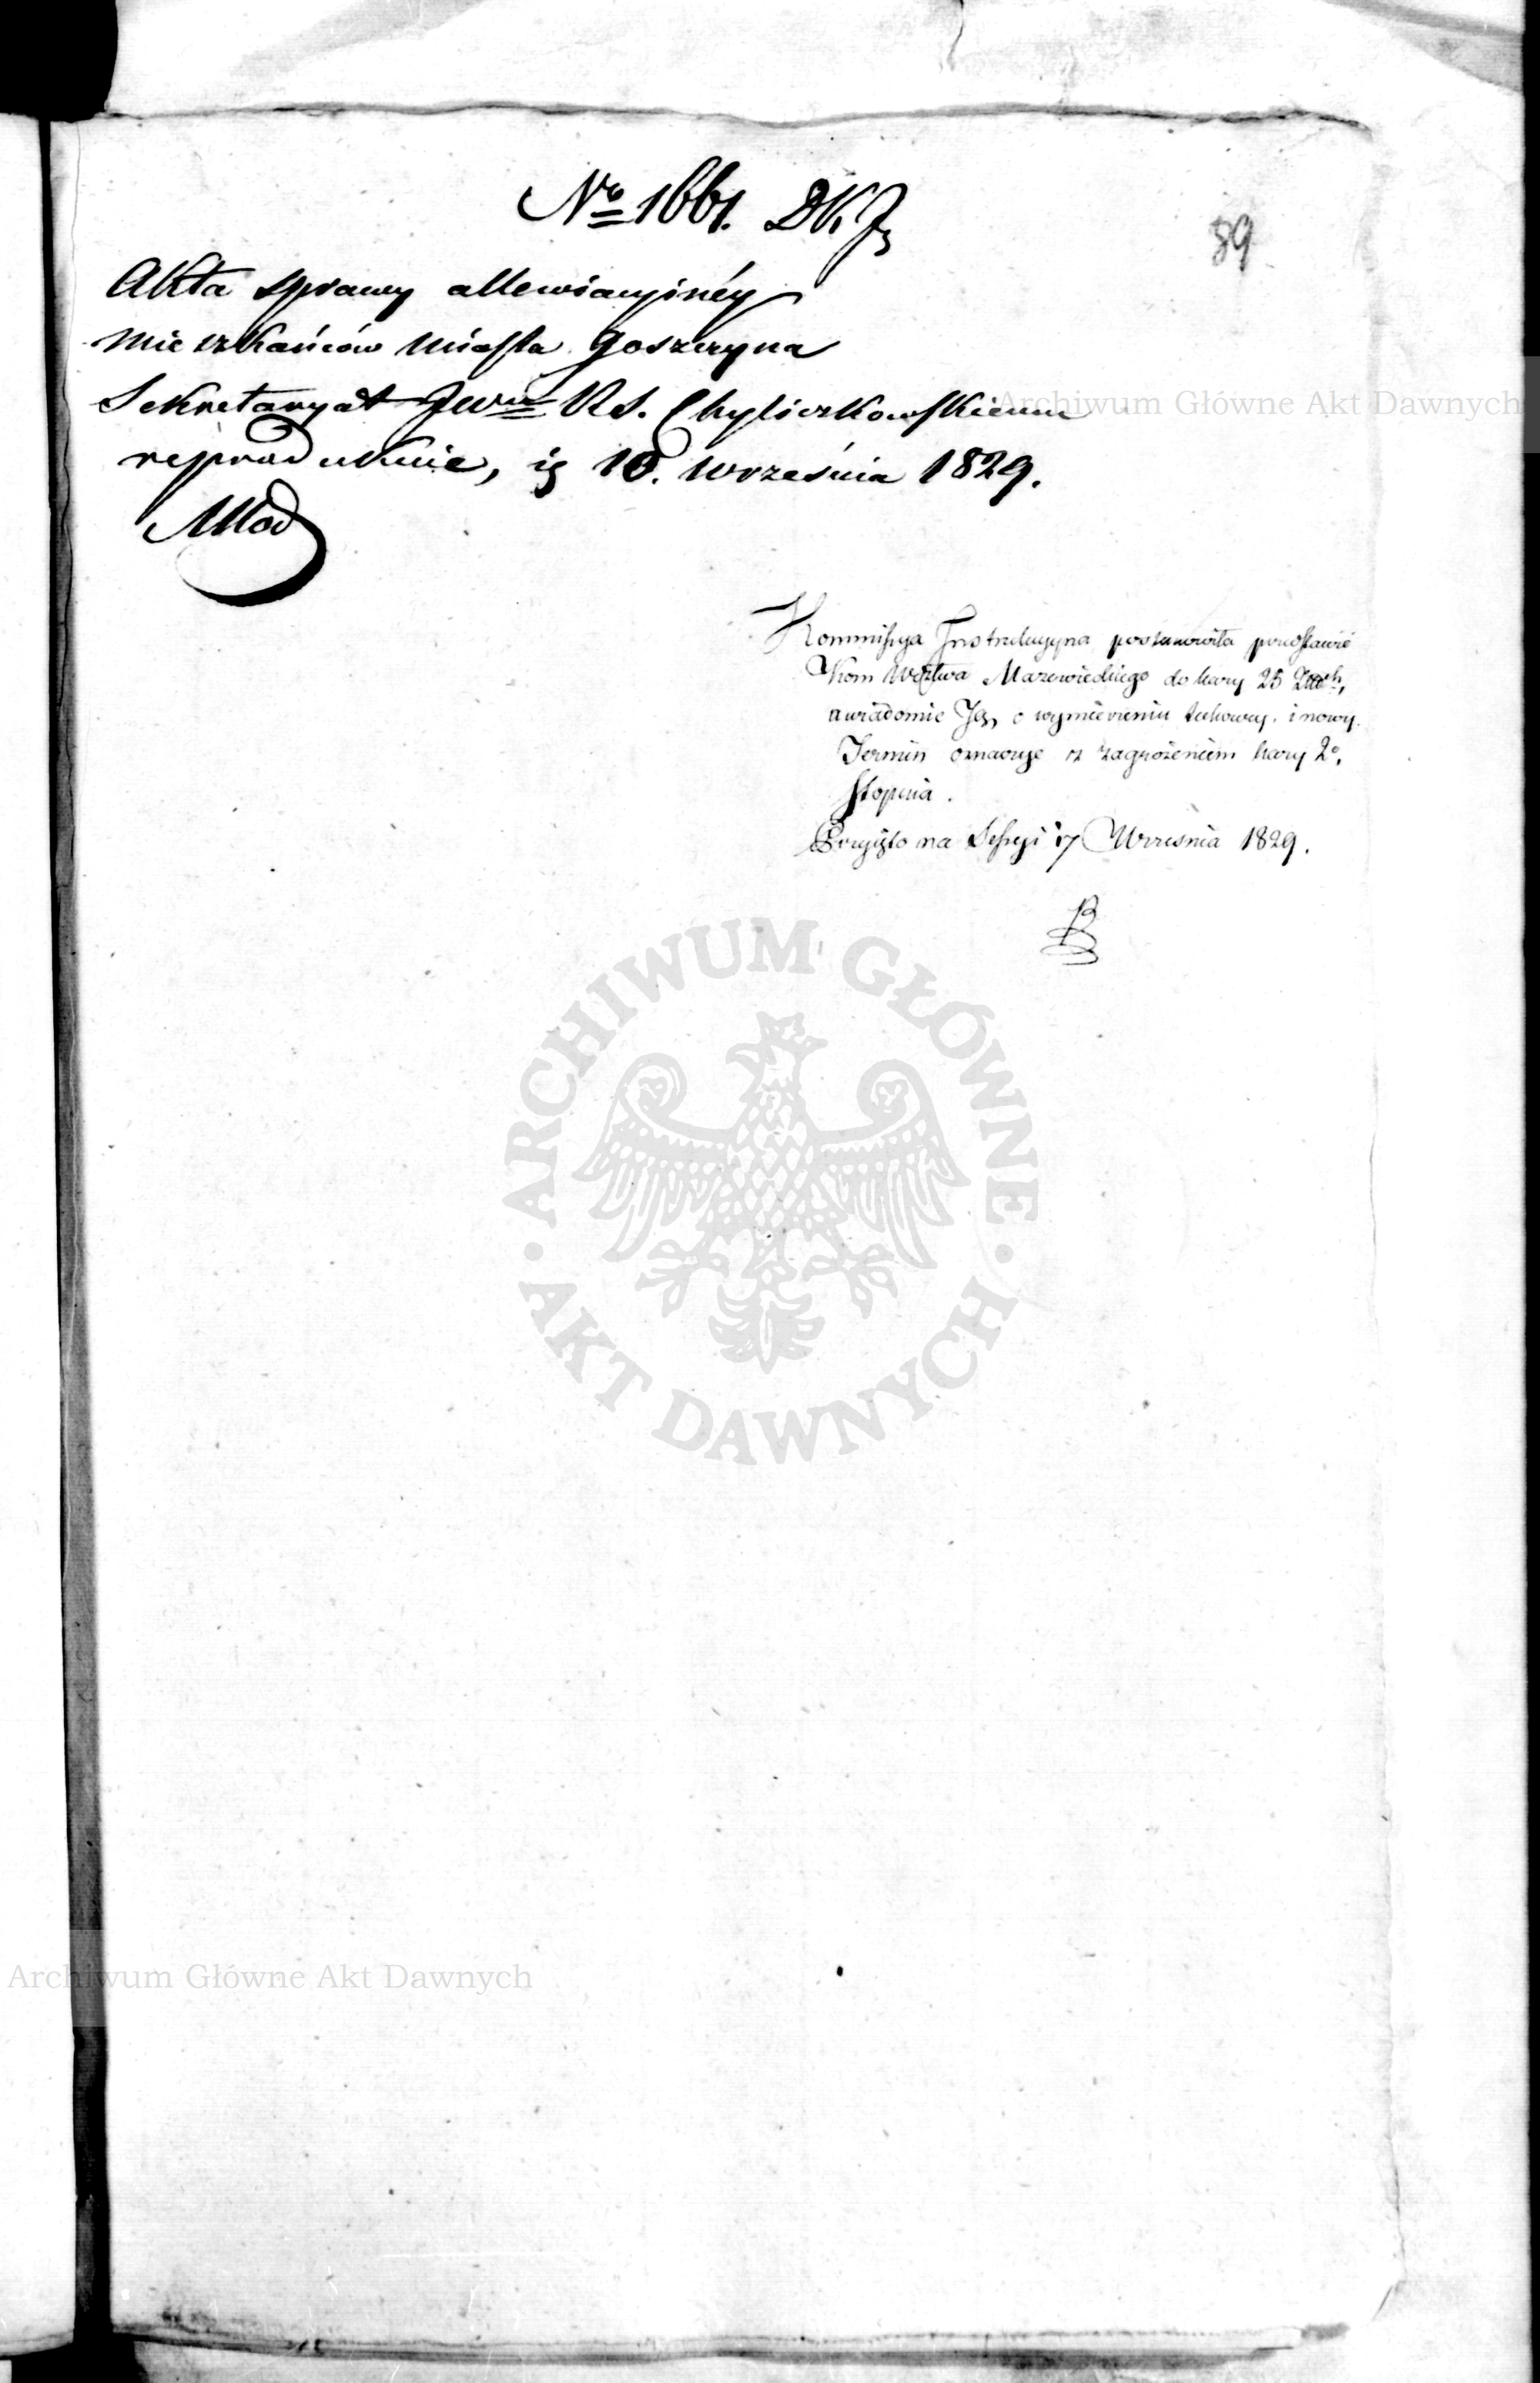 No 1661. DKJ
89
Akta sprawy allewiacyjnéy
mieszkańców miasta Goszczyna
Sekretaryat Jwmu RS. Chyliczkowskiemu
reprodukuie, 10. września 1829.
Młod
Kommissya Instrukcyjna postanowiła przedstawić
Kom Wdztwa Mazowieckiego do kary 25 Złłch,
uwiadomić Ją o wymierzeniu takowey. i nowy
Termin oznaczyć z zagrożeniem kary 2o.
stopnia.
Przyięto na Sessyi 17 Września 1829.
B
Archiwum Główne Akt Dawnych
ARCHIWUM GŁÓWNE
AKT DAWNYCH
Archiwum Główne Akt Dawnych